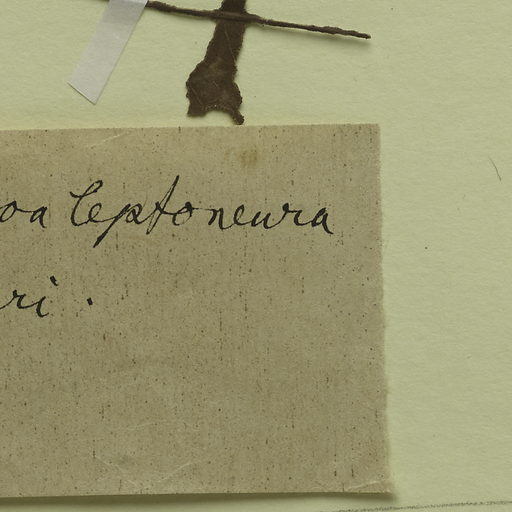 oa leptoneura
ri.